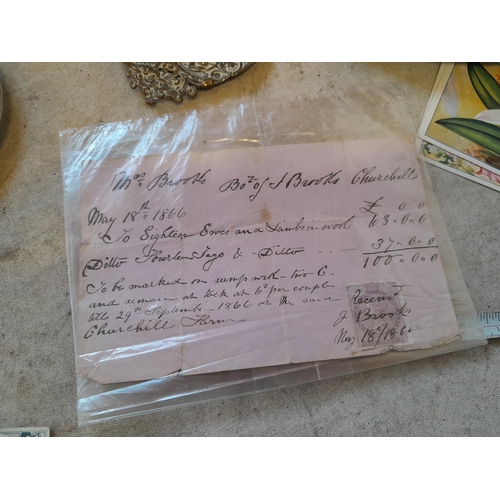 Mrs Brooks Bot of J Brooks Churchill
May 18th 1866
£ o o
To Eighteen Ewes and Lambs in wool 63 „ 0 „ 0
Ditto Fourteen Tegs & - Ditto 37 „ 0 „ 0
100 „ 0 „ 0
To be marked on rump with - two C
and remain at tack at 6d per couple
till 29th September 1866 on the said
Churchill Farm
Received
J Brooks
May 18/1866